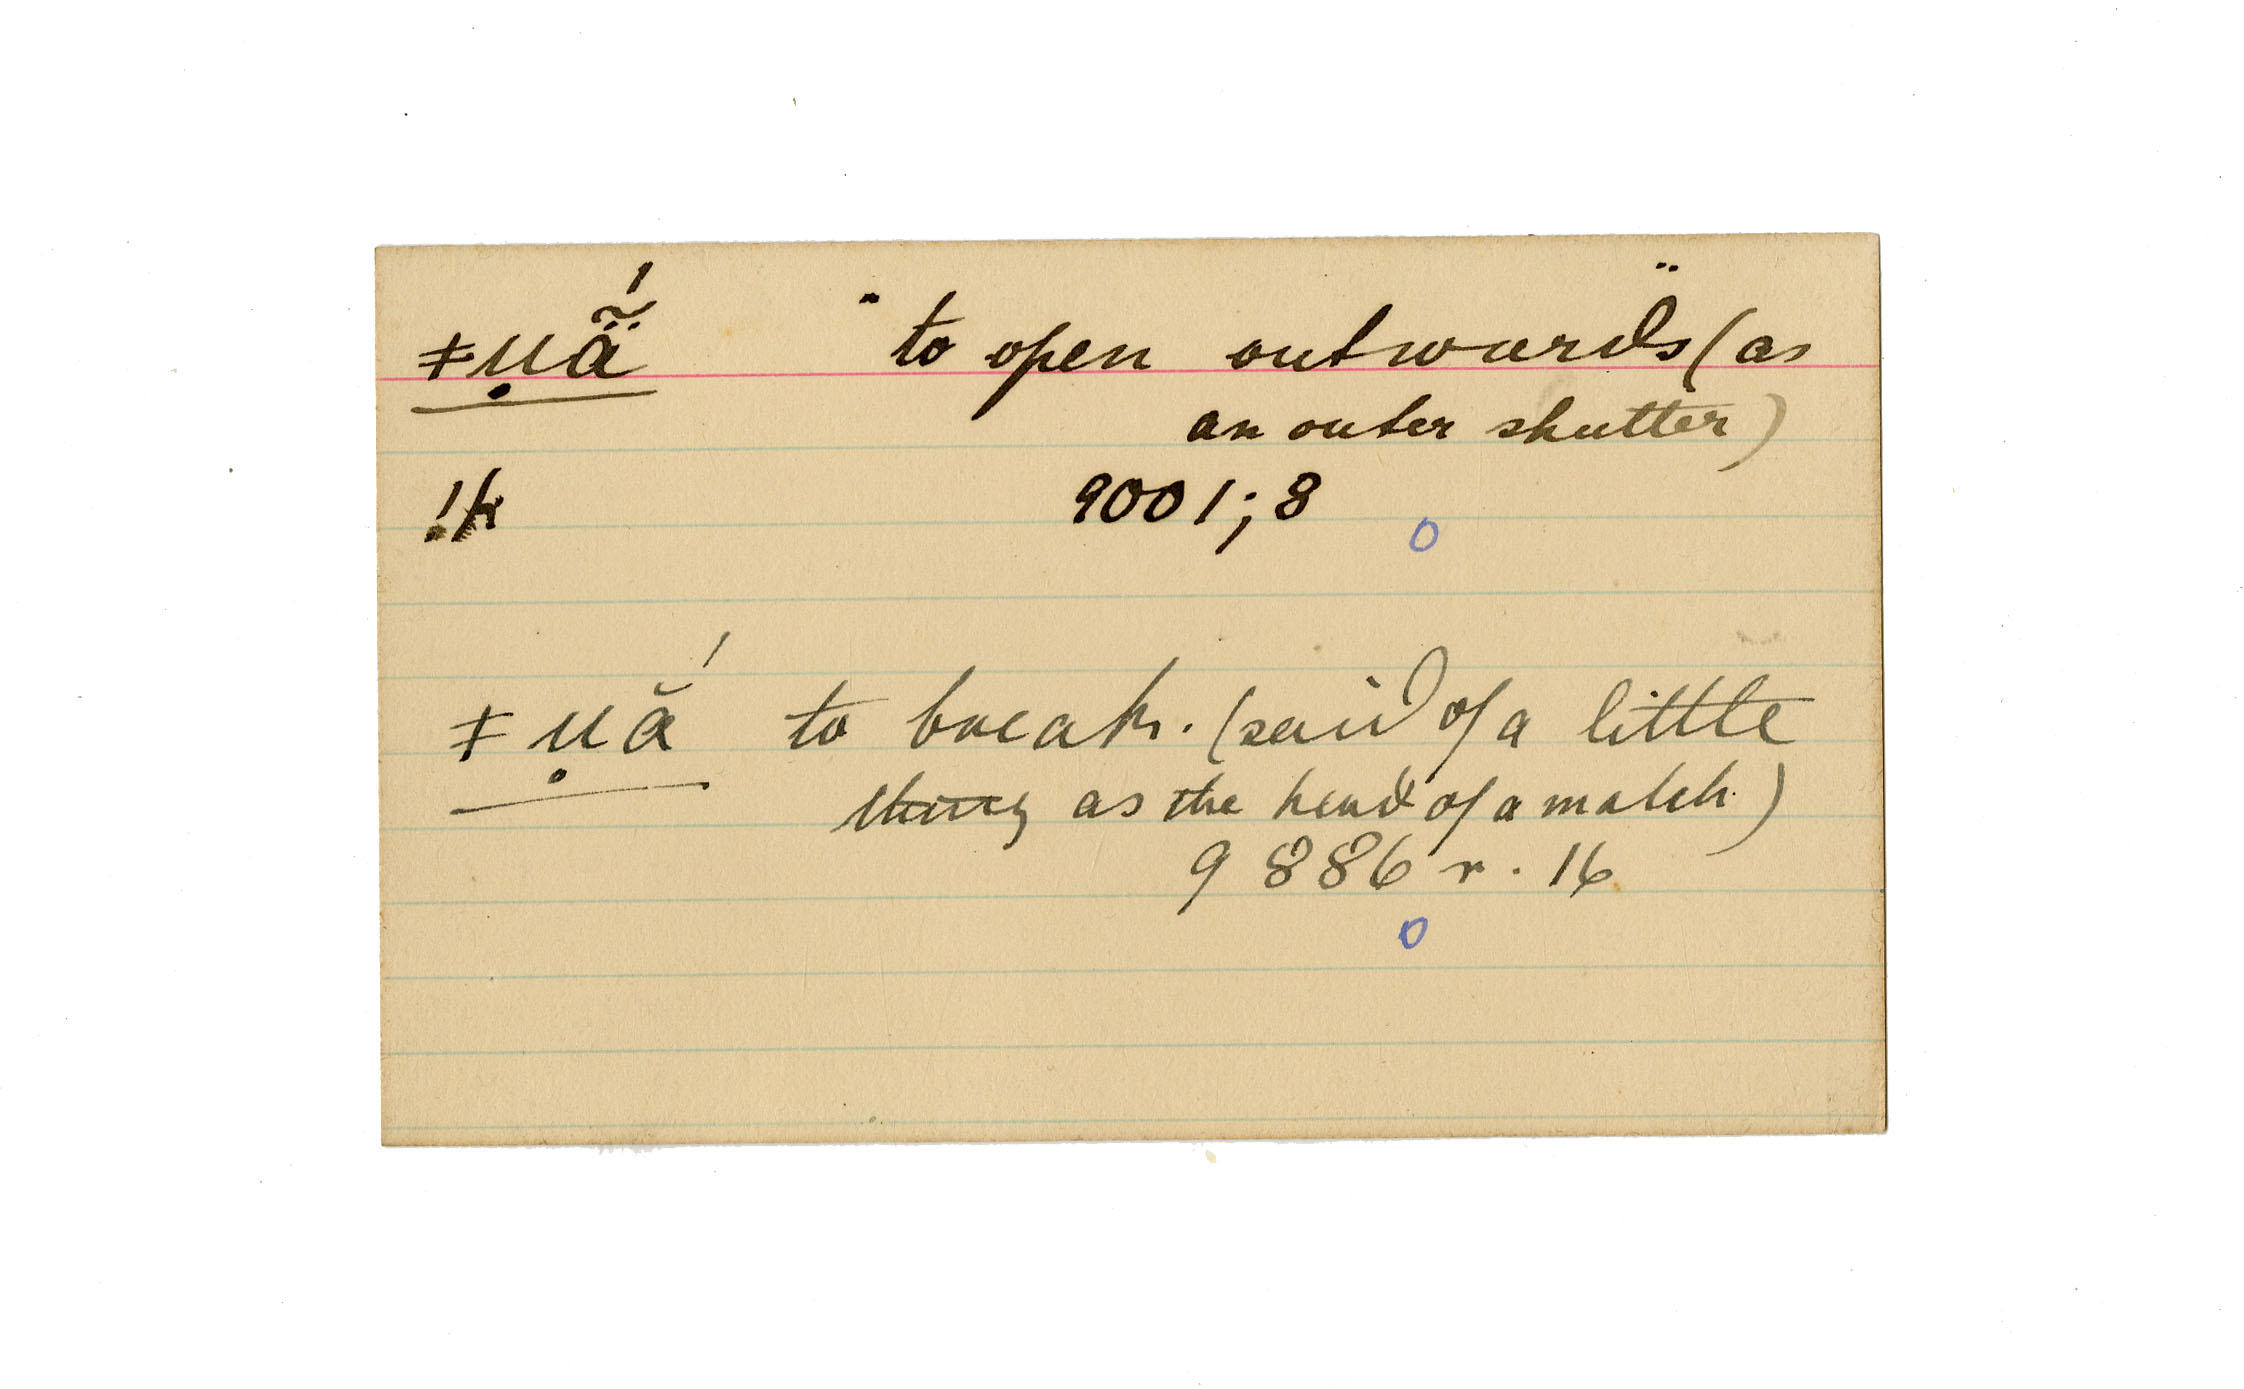 ǂụã̈́ " to open outwards" (as
an outer shutter)
!k 9001; 8
o
ǂụắ to break. (said of a little
thing as the head of a match)
9886 r. 16
o